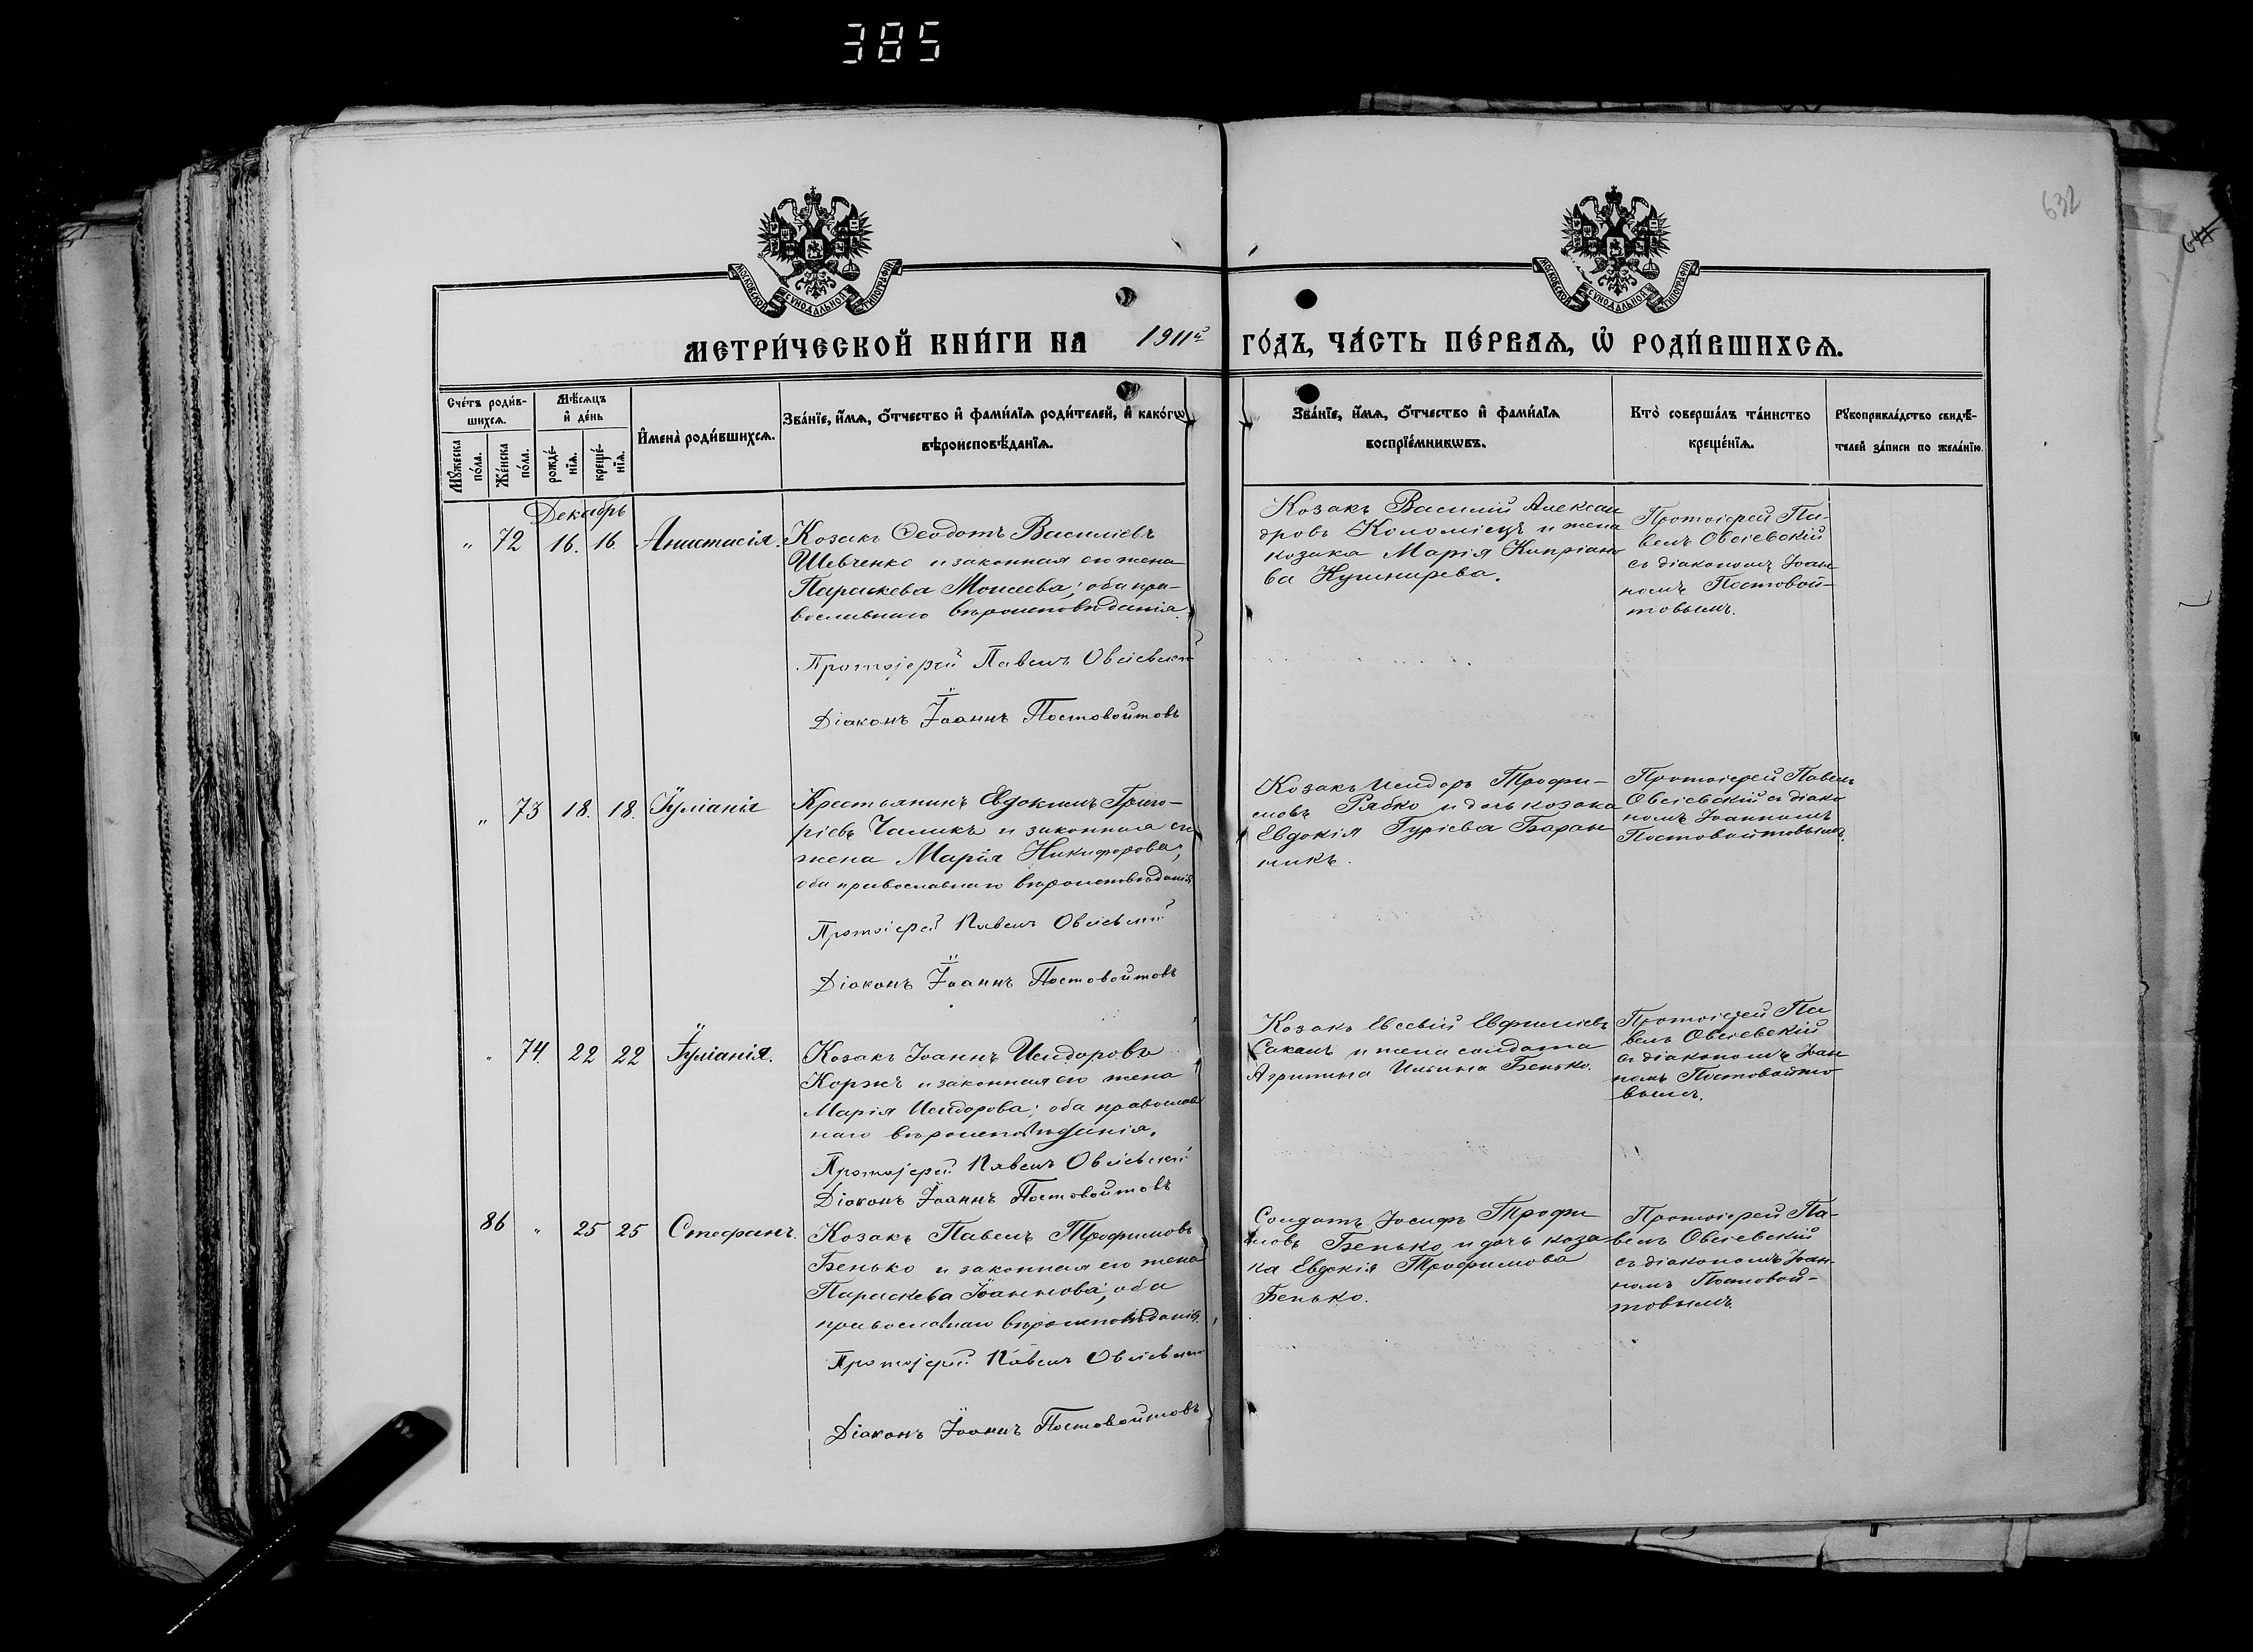 385
632
МОСКОВСКОЙ СѴНОДАЛЬНОЙ ТИПОГРАФІИ
МОСКОВСКОЙ СѴНОДАЛЬНОЙ ТИПОГРАФІИ
МЕТРИ́ЧЕСКОЙ КНИ́ГИ НА 1911й ГО́ДЪ, ЧА́СТЬ ПЕ́РВАѦ, Ѡ҆ РОДИ́ВШИХСѦ.
Сче́тъ роди́в-
шихсѧ.
Мꙋжеска по́ла.
Же́нска по́ла.
Мѣ́сѧцъ
и҆ де́нь
рожде́-
нїѧ.
креще́-
нїѧ.
И҆мена̀ роди́вшихсѧ.
Зва́нїе, и҆́мѧ, ѻ҆́тчество и҆ фами́лїѧ роди́телей, и҆ како́гѡ
вѣроисповѣ́данїѧ.
Зва́нїе, и҆́мѧ, ѻ҆́тчество и҆ фами́лїѧ
воспрїе́мникѡвъ.
Кто̀ соверша́лъ та́инство
креще́нїѧ.
Рꙋкоприкла́дство свидѣ́-
телей за́писи по жела́нїю.
Декабрь
„ 72 16. 16. Анастасія.
Козакъ Ѳеодотъ Василіевъ
Шевченко и законная его жена
Параскева Моисеева; оба пра-
вославнаго вѣроисповѣданія.
Протоіерей Павелъ Овсіевскій
Діаконъ Іоаннъ Постовойтовъ
Козакъ Василій Алексан
дровъ Коломіецъ и жена
козака Марія Кипріано
ва Кушнирева.
Протоіерей Па-
велъ Овсіевскій
съ діакономъ Іоан
номъ Постовой-
товымъ.
„ 73 18. 18. Іуліанія
Крестьянинъ Евдокимъ Григо-
ріевъ Чаликъ и законная его
жена Марія Никифорова;
оба православнаго вѣроисповѣданія
Протоіерей Павелъ Овсіевскій
Діаконъ Іоаннъ Постовойтовъ
Козакъ Исидоръ Трофи-
мовъ Рябко и дочь козака
Евдокія Гуріева Баран
никъ.
Протоіерей Павелъ
Овсіевскій съ діако
номъ Іоанномъ
Постовойтовымъ.
„ 74. 22 22 Іуліанія.
Козакъ Іоаннъ Исидоровъ
Коржъ и законная его жена
Марія Исидорова; оба православ
наго вѣроисповѣданія.
Протоіерей Павелъ Овсіевскій
Діаконъ Іоаннъ Постовойтовъ
Козакъ Евсевій Евфиміевъ
Сакалъ и жена солдата
Агрипина Ильина Бенько.
Протоіерей Па
велъ Овсіевскій
съ діакономъ Іоан
номъ Постовойто
вымъ.
86 „ 25 25 Стефанъ.
Козакъ Павелъ Трофимовъ
Бенько и законная его жена
Параскева Іоаннова; оба
православнаго вѣроисповѣданія.
Протоіерей Павелъ Овсіевскій
Діаконъ Іоаннъ Постовойтовъ
Солдатъ Іосифъ Трофи
мовъ Бенько и дочь коза-
ка Евдокія Трофимова
Бенько.
Протоіерей Па-
велъ Овсіевскій
съ діакономъ Іоан-
номъ Постовой-
товымъ.